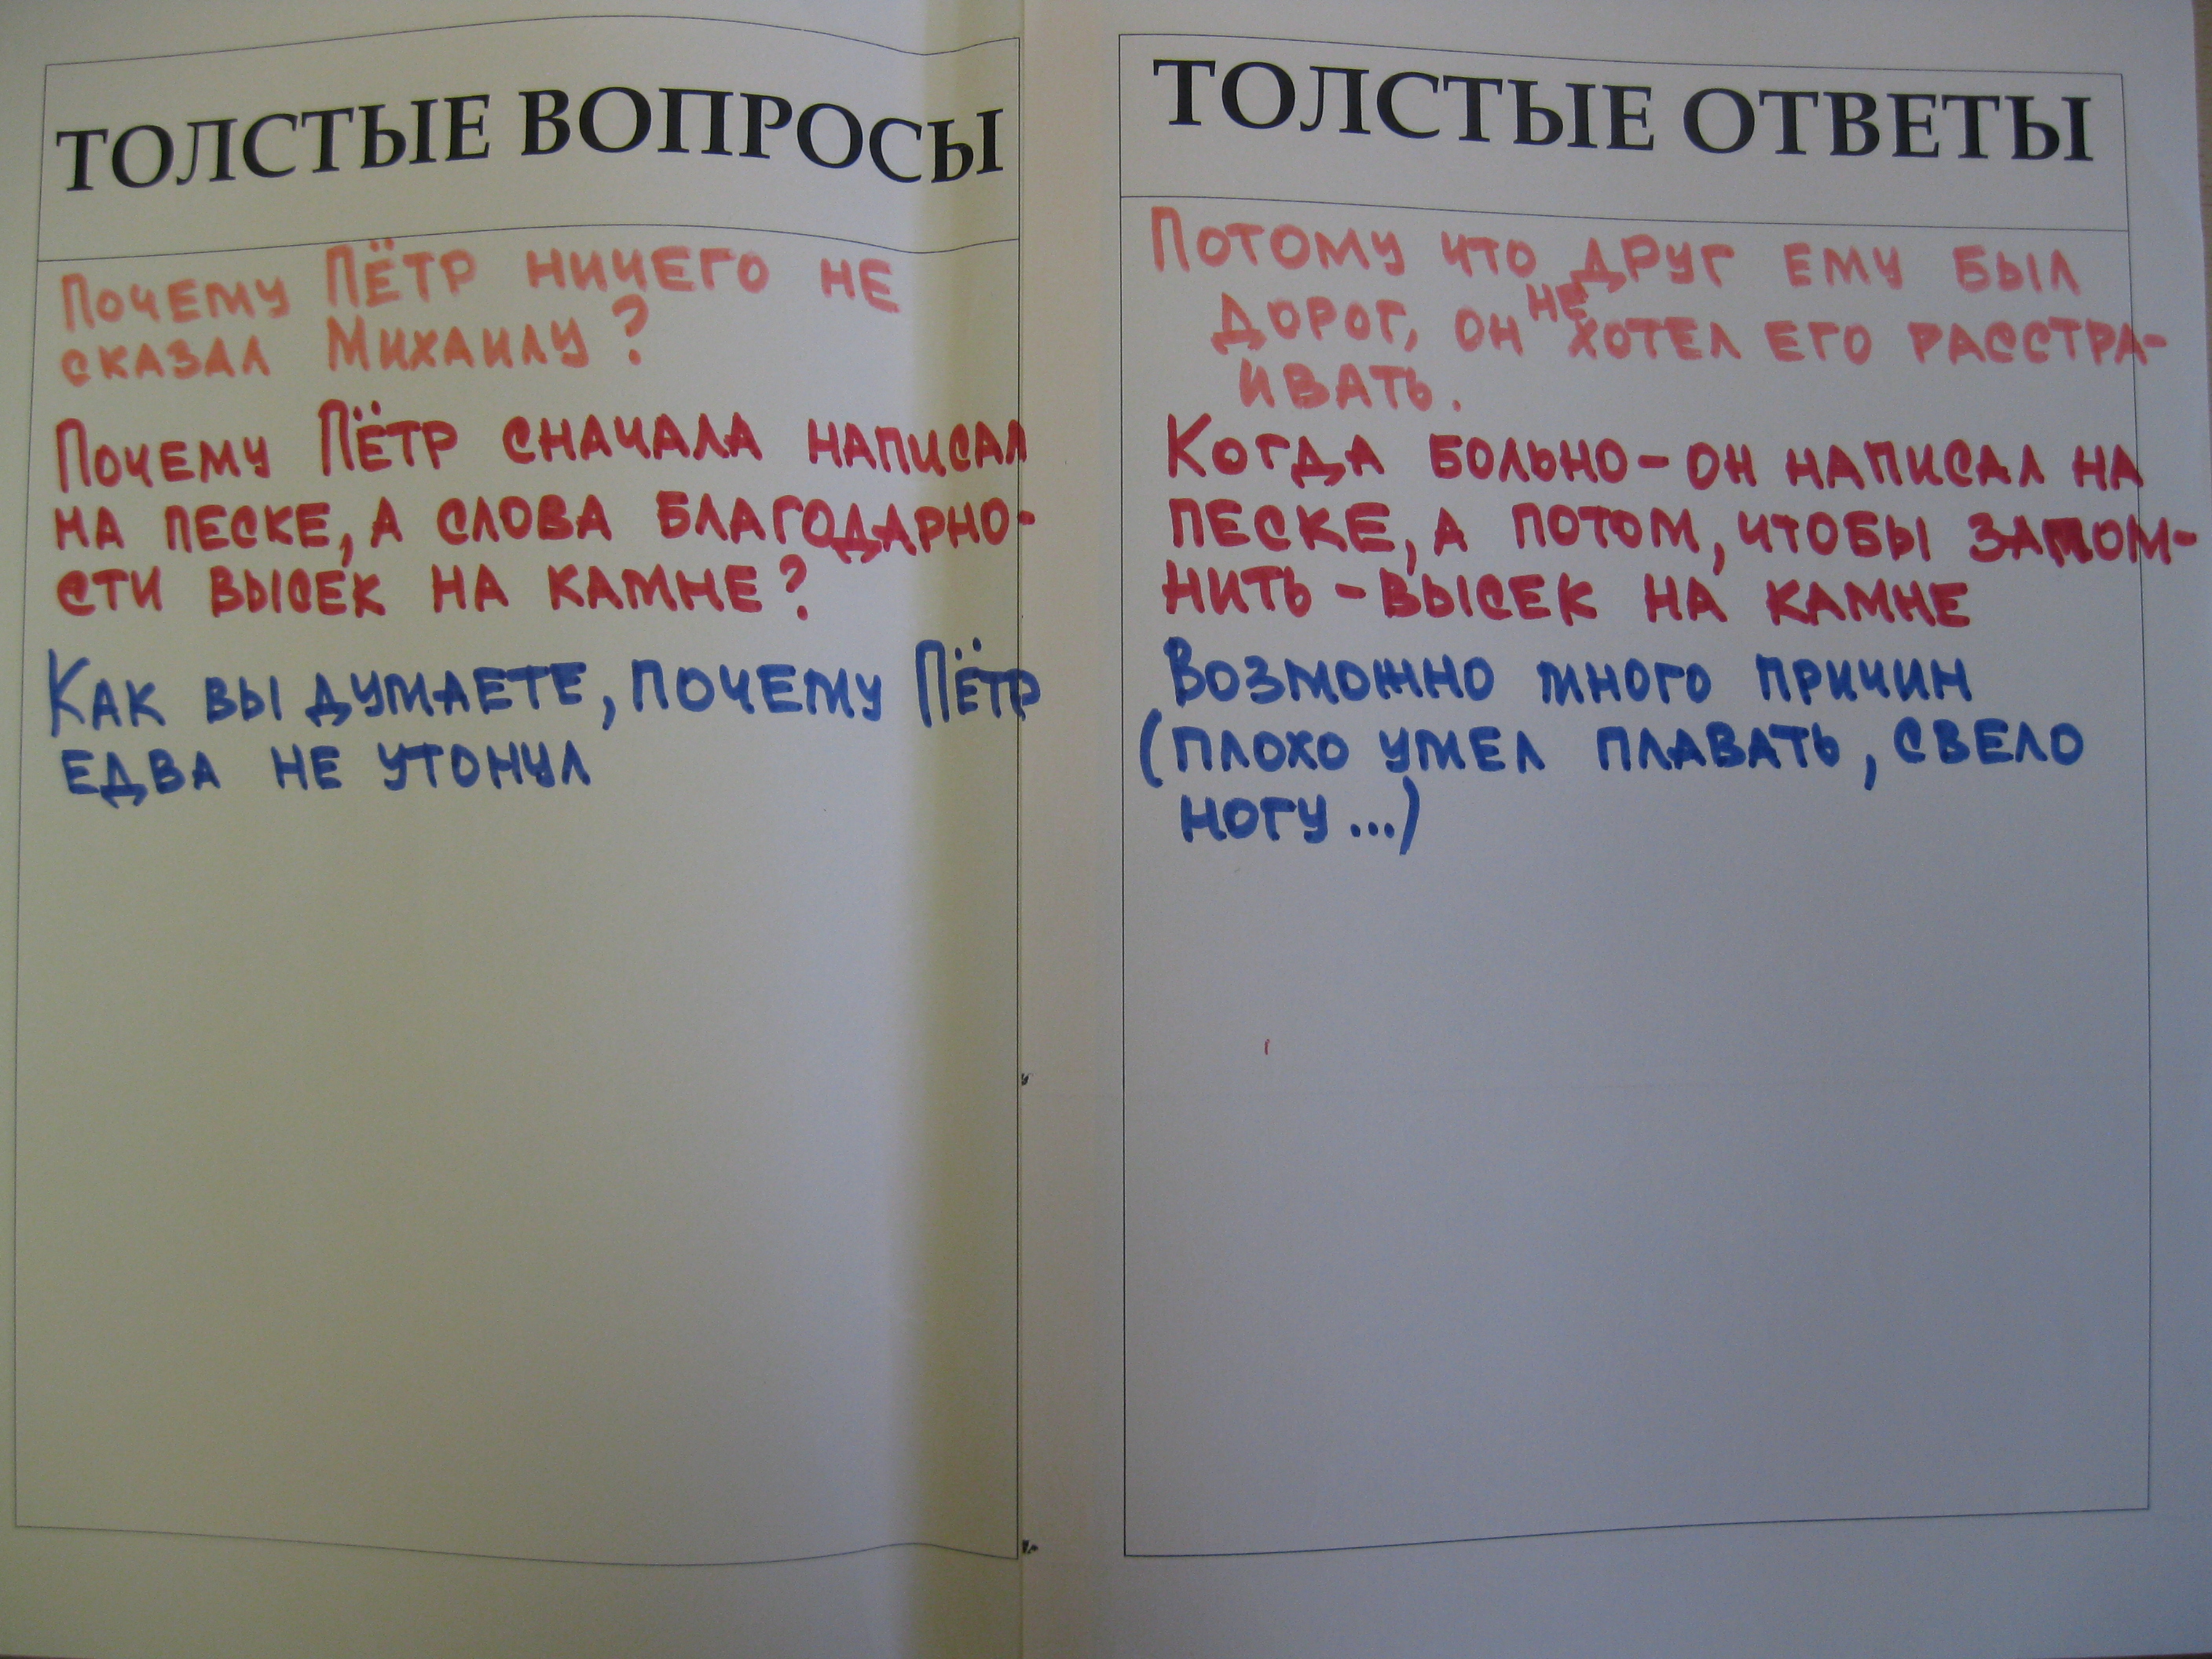 ТОЛСТЫЕ ВОПРОСЫ
Почему Пётр ничего не
сказал Михаилу?
Почему Пётр сначала написал
на песке, а слова благодарно-
сти высек на камне?
Как вы думаете, почему Пётр
едва не утонул
ТОЛСТЫЕ ОТВЕТЫ
Потому что друг ему был
дорог, он не хотел его расстра-
ивать.
Когда больно - он написал на
песке, а потом, чтобы запом-
нить - высек на камне
Возможно много причин
(плохо умел плавать, свело
ногу...)